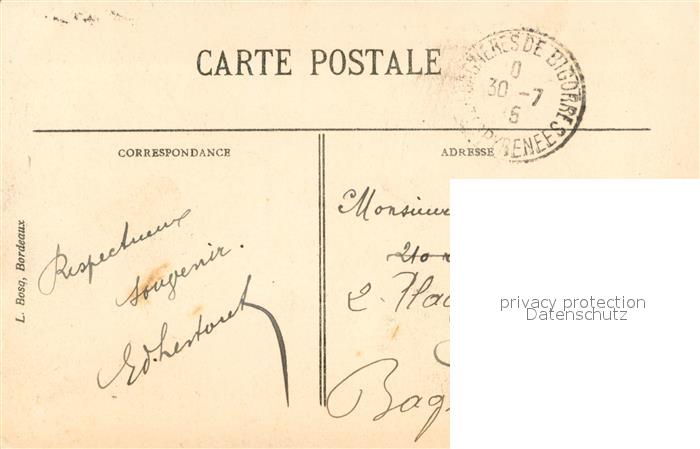 CARTE POSTALE
BIGORRES DE BIGORRES
30 -7
CORRESPONDANCE
ADRESSE
L. Bosq, Bordeaux
Respectueux
souvenir.
Monsieur
210
2. Plac
Bag
privacy protection
Datenschutz